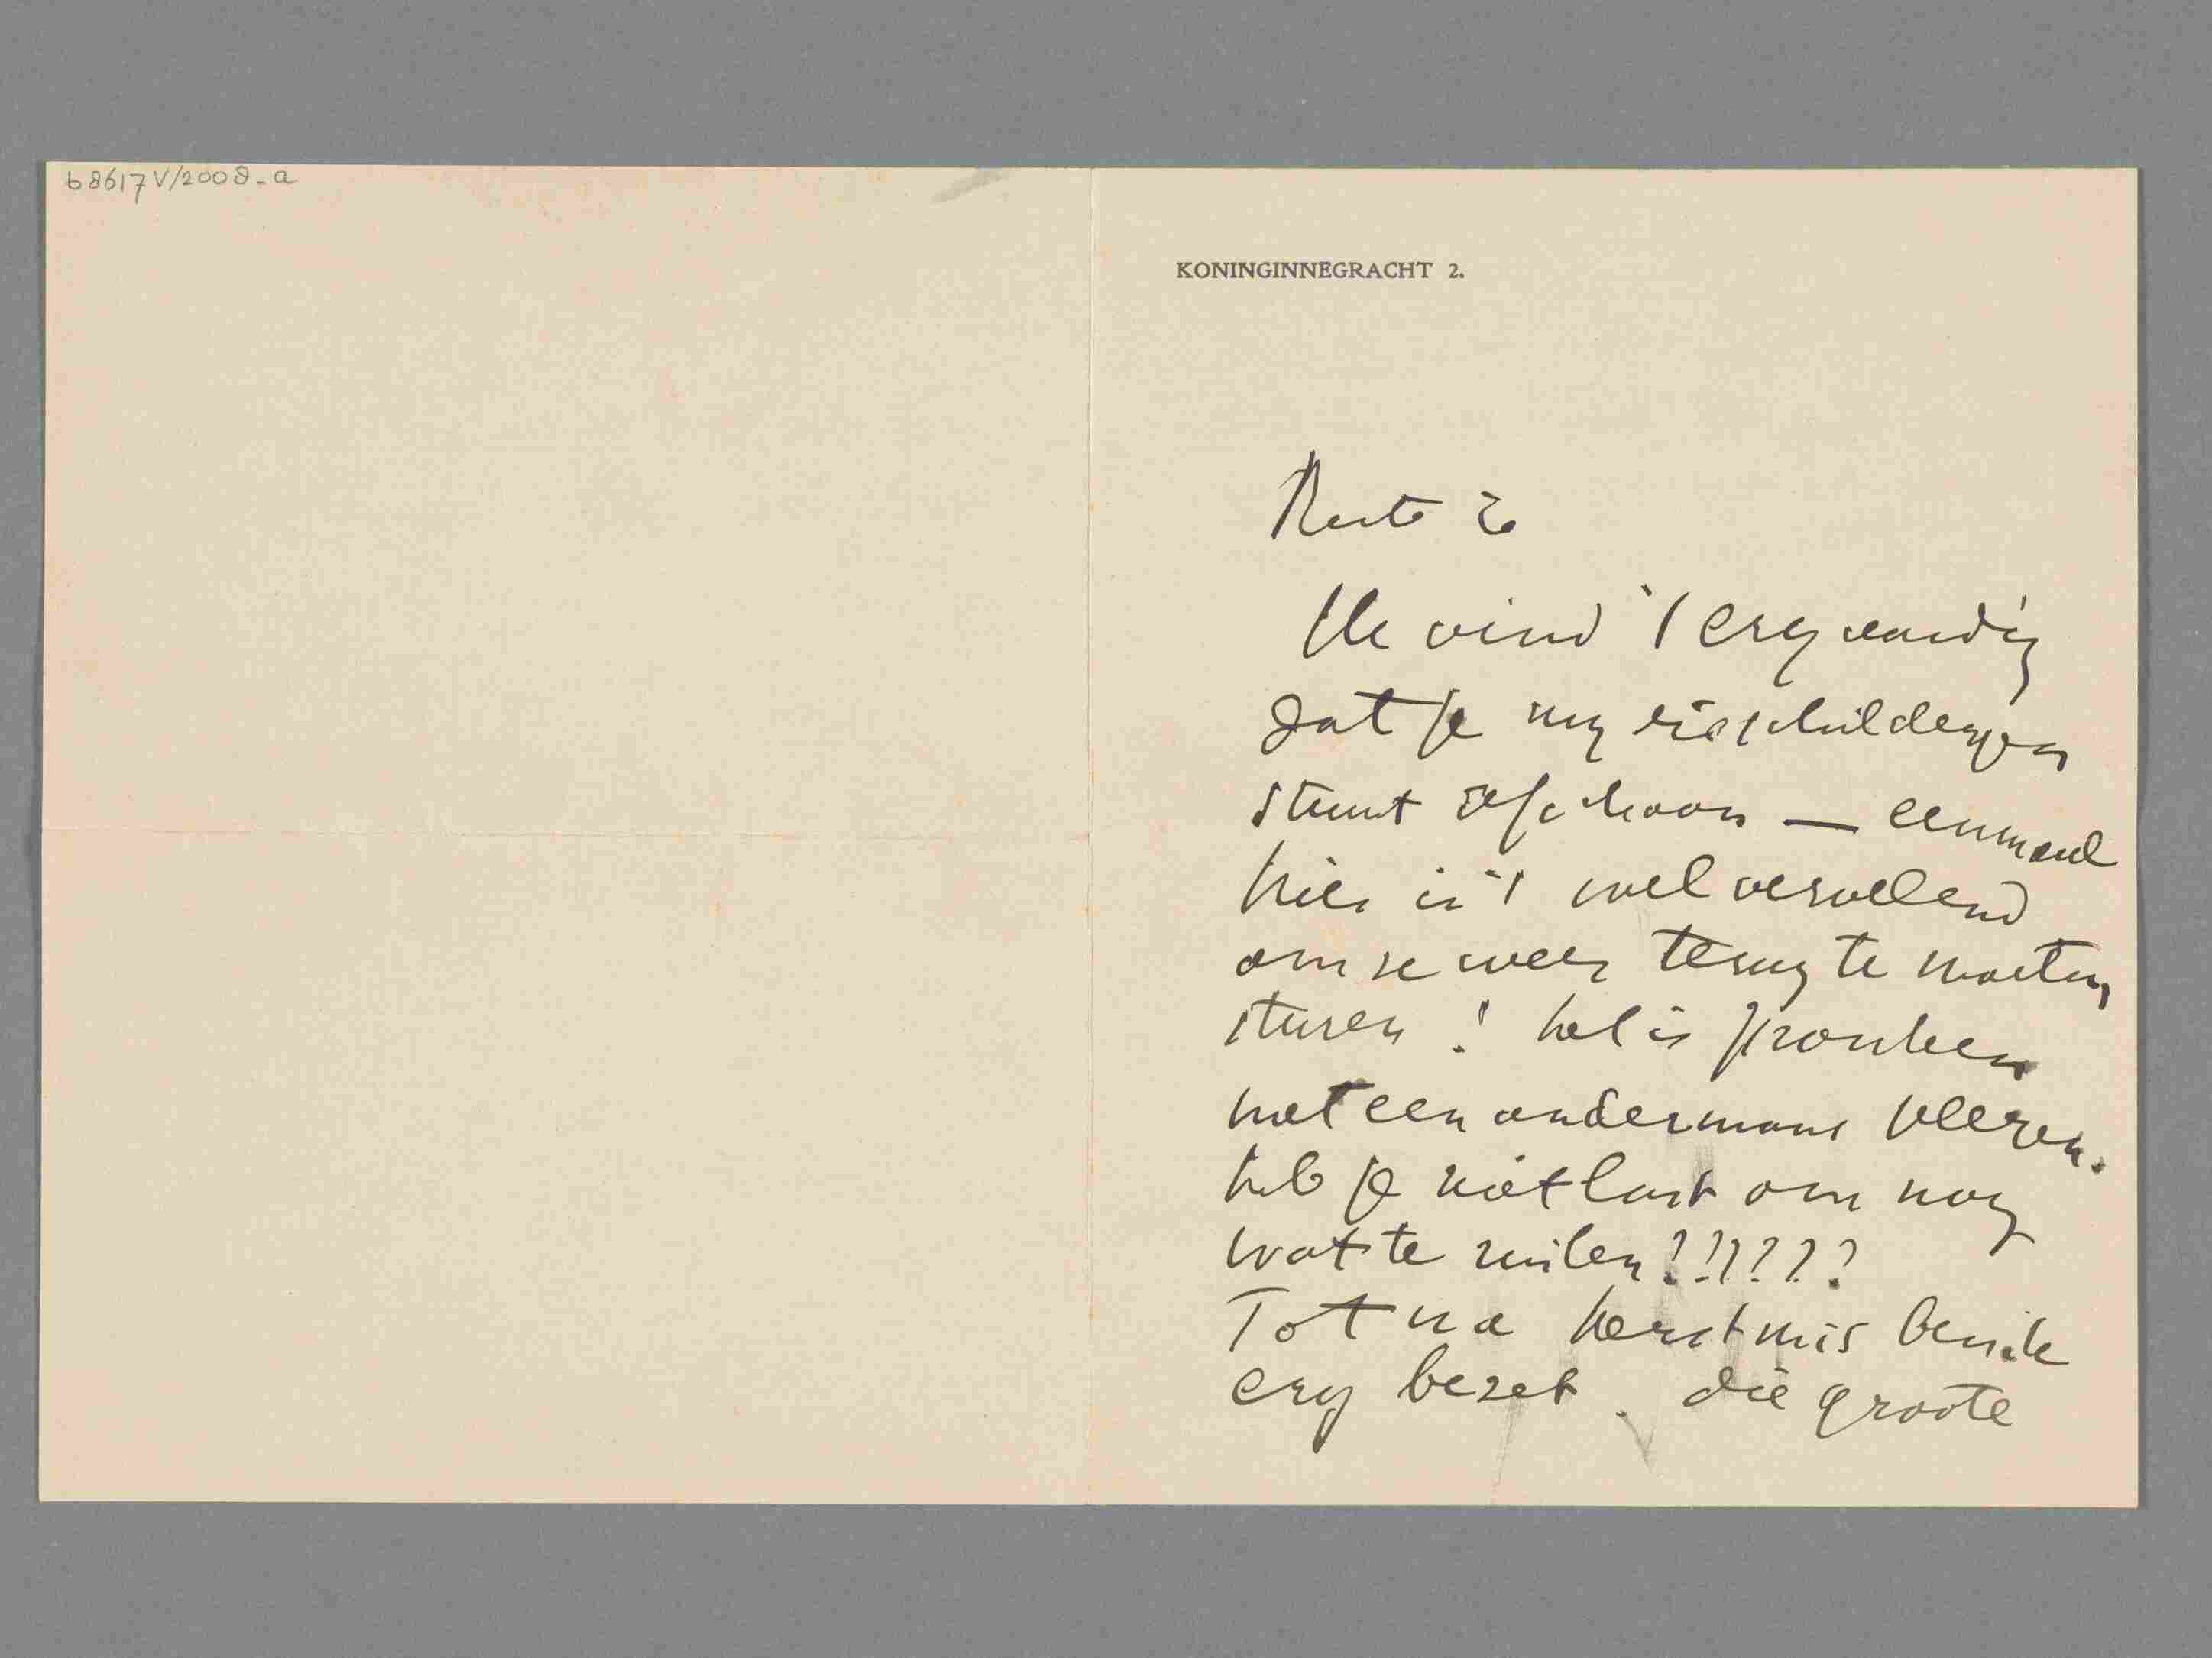 b8617V/2008-a
KONINGINNEGRACHT 2.
Beste Jo
Ik vind 't erg aardig
dat je my die schilderyen
stuurt ofschoon — eenmaal
hier is 't wel vervelend
om ze weer terug te moeten
sturen ! het is pronken
met een andermans veeren.
heb je niet lust om nog
wat te ruilen!!!???
Tot na kerstmis ben ik
erg bezet. die groote